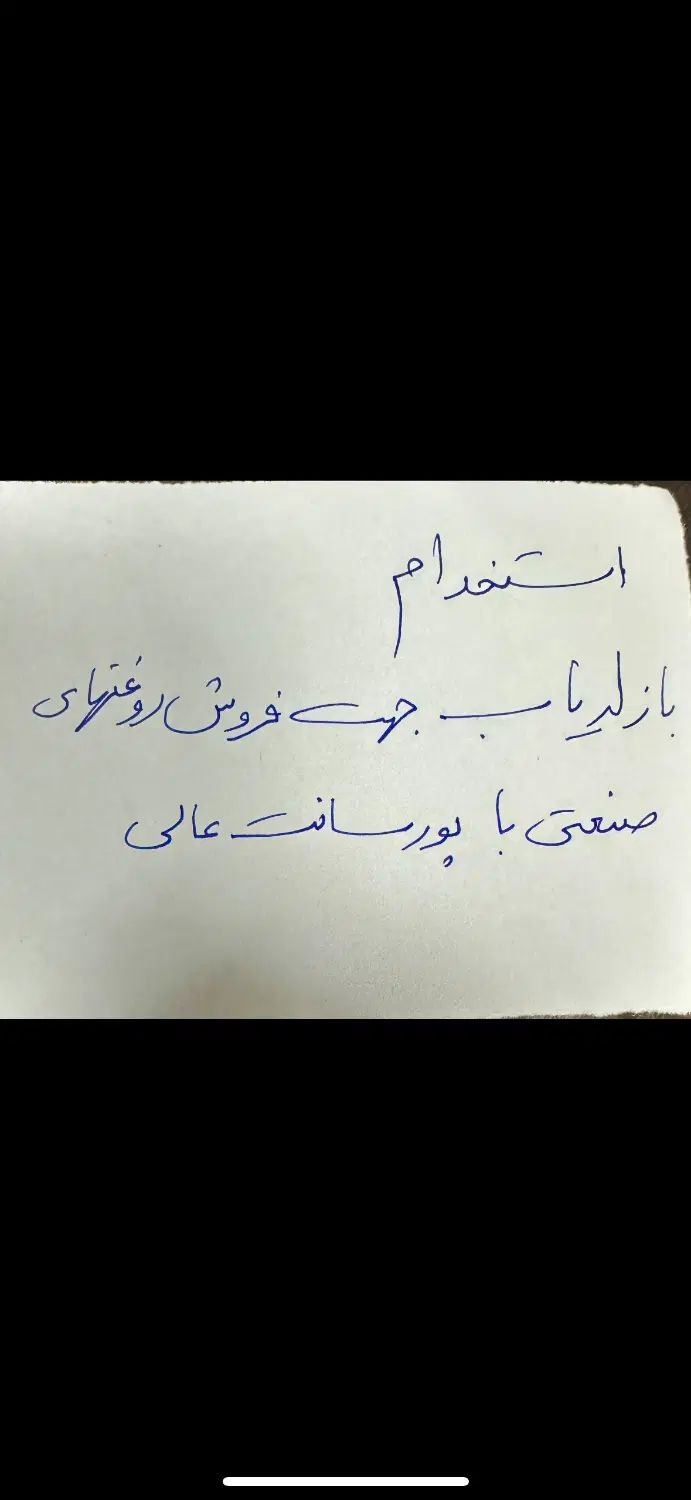 استخدام
بازاریاب جهت فروش روغنهای
صنعتی با پورسانت عالی